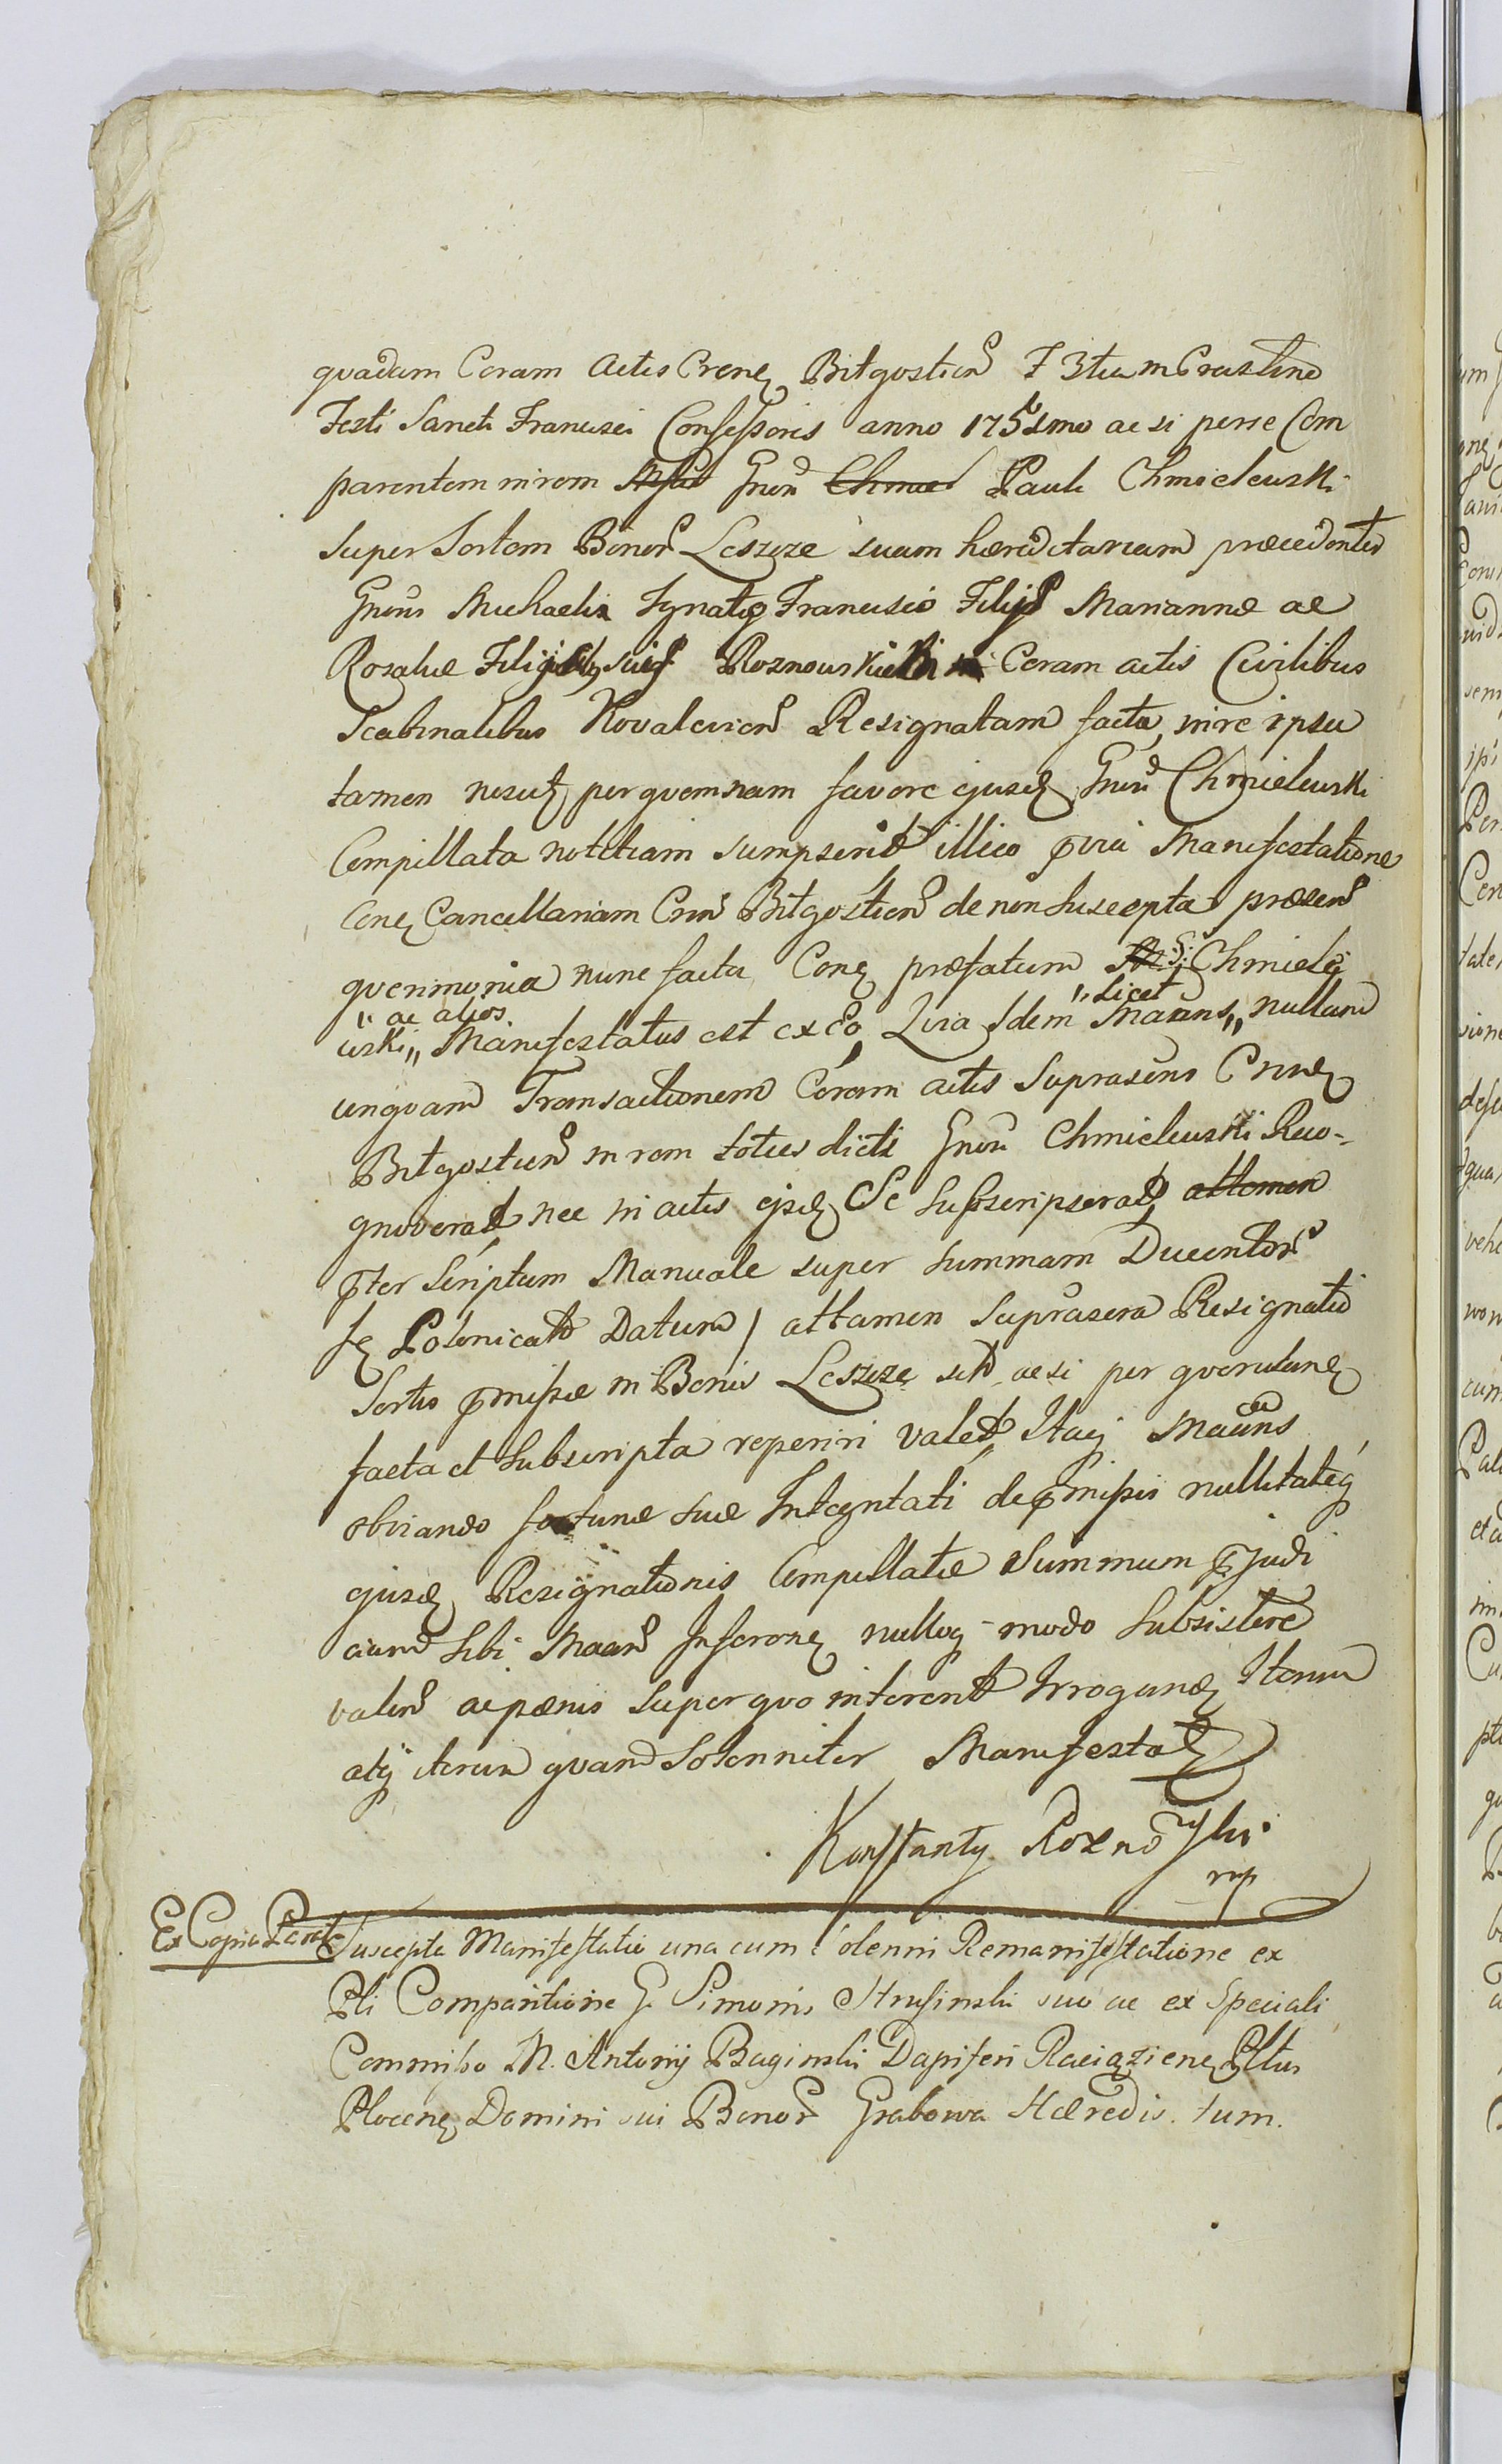 quadam Coram Actis Crenẽ Bitgostien F 3tia in Crastino
Festi Sancti Francisci Confessoris anno 1751mo ac si per se Com
parentem in rem Gnosi Pauli Chmielewski
super Sortem Bonor Leszcze suam hæreditariam præcedenter
Gnosis Michaelis Ignatio Francisco Filijs Mariannæ ac
Rosaliæ Coram actis Civilibus
Scabinalibus Kovalevien Resignatam facta, in re ipsa
tamen per quemnam favore ejusd Gnosi Chmielewski
Compillata notitiam sumpserit illico Manifestatione
Conẽ Cancellariam Cren Bitgostien de non suscepta præsen
querimonia nunc facta Conẽ præfatum G: Chmiele
" ac alios " licet
wski " Manifestatus est ex eo Quia Idem Maans " nullam
unquam Transactionem Coram actis suprascris Crenẽ
Bitgostien in rem toties dicti Gnosi Chmielewski Reco-
gnoverat nec in actis ejusd Se subscripserat attamen
pter Scriptum Manuale super summam Ducentor
fl Polonicat Datum / attamen suprascra Resignatio
Sortis pmissæ in Bonis Leszcze sit ac si per querulanẽ
facta et subscripta reperiri valet Itaq Maans
obviando fortunæ suæ Integritati de pmissis nullitateq
ejusd Resignationis Compillatæ Summum pjudi
cium sibi Maan Inferenẽ nulloq modo subsistere
valen ac pænis super quo inferent Irroganẽ Iterum
atq iterum quam solenniter Manifestat
Konstanty Rozno wski
mp
Ex Copia Parata
Suscepta Manifestatio una cum solenni Remanifestatione ex
Pli Comparitione G. Simonis Strusinski suo ac ex Speciali
Commisso M. Antonij Baginski Dapiferi Raciązienẽ Pltus
Plocenẽ Domini sui Bonor Grabowa Hæredis. tum.